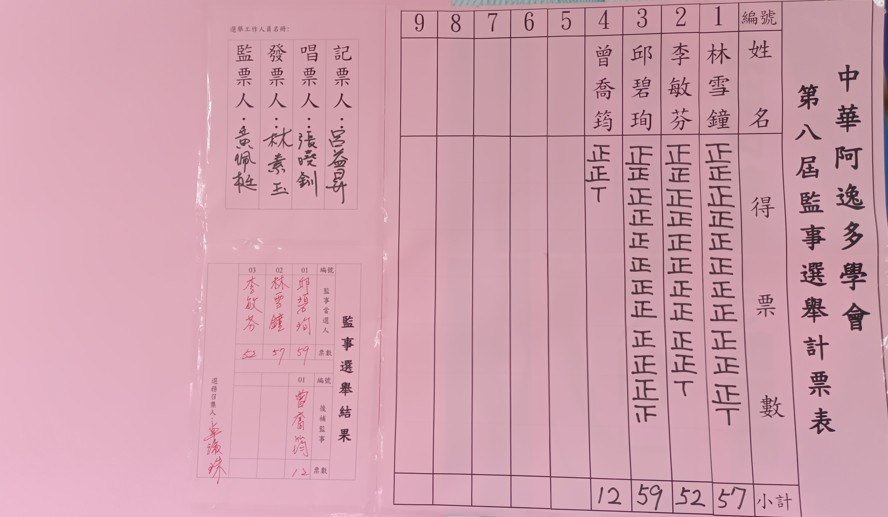 中華阿逸多學會
第八屆監事選舉計票表
編號 姓名 得票數 小計
1 林雪鐘 正正正正正正正正正正正丅 57
2 李敏芬 正正正正正正正正正正丅 52
3 邱碧珣 正正正正正正正正正正正正 59
4 曾喬筠 正正丅 12
5
6
7
8
9
選舉工作人員名冊:
記票人:呂益昇
唱票人:張曉釧
發票人:林素玉
監票人:黃佩莛
監事選舉結果
編號 監事當選人 票數
01 邱碧珣 59
02 林雪鐘 57
03 李敏芬 52
編號 後補監事 票數
01 曾喬筠 12